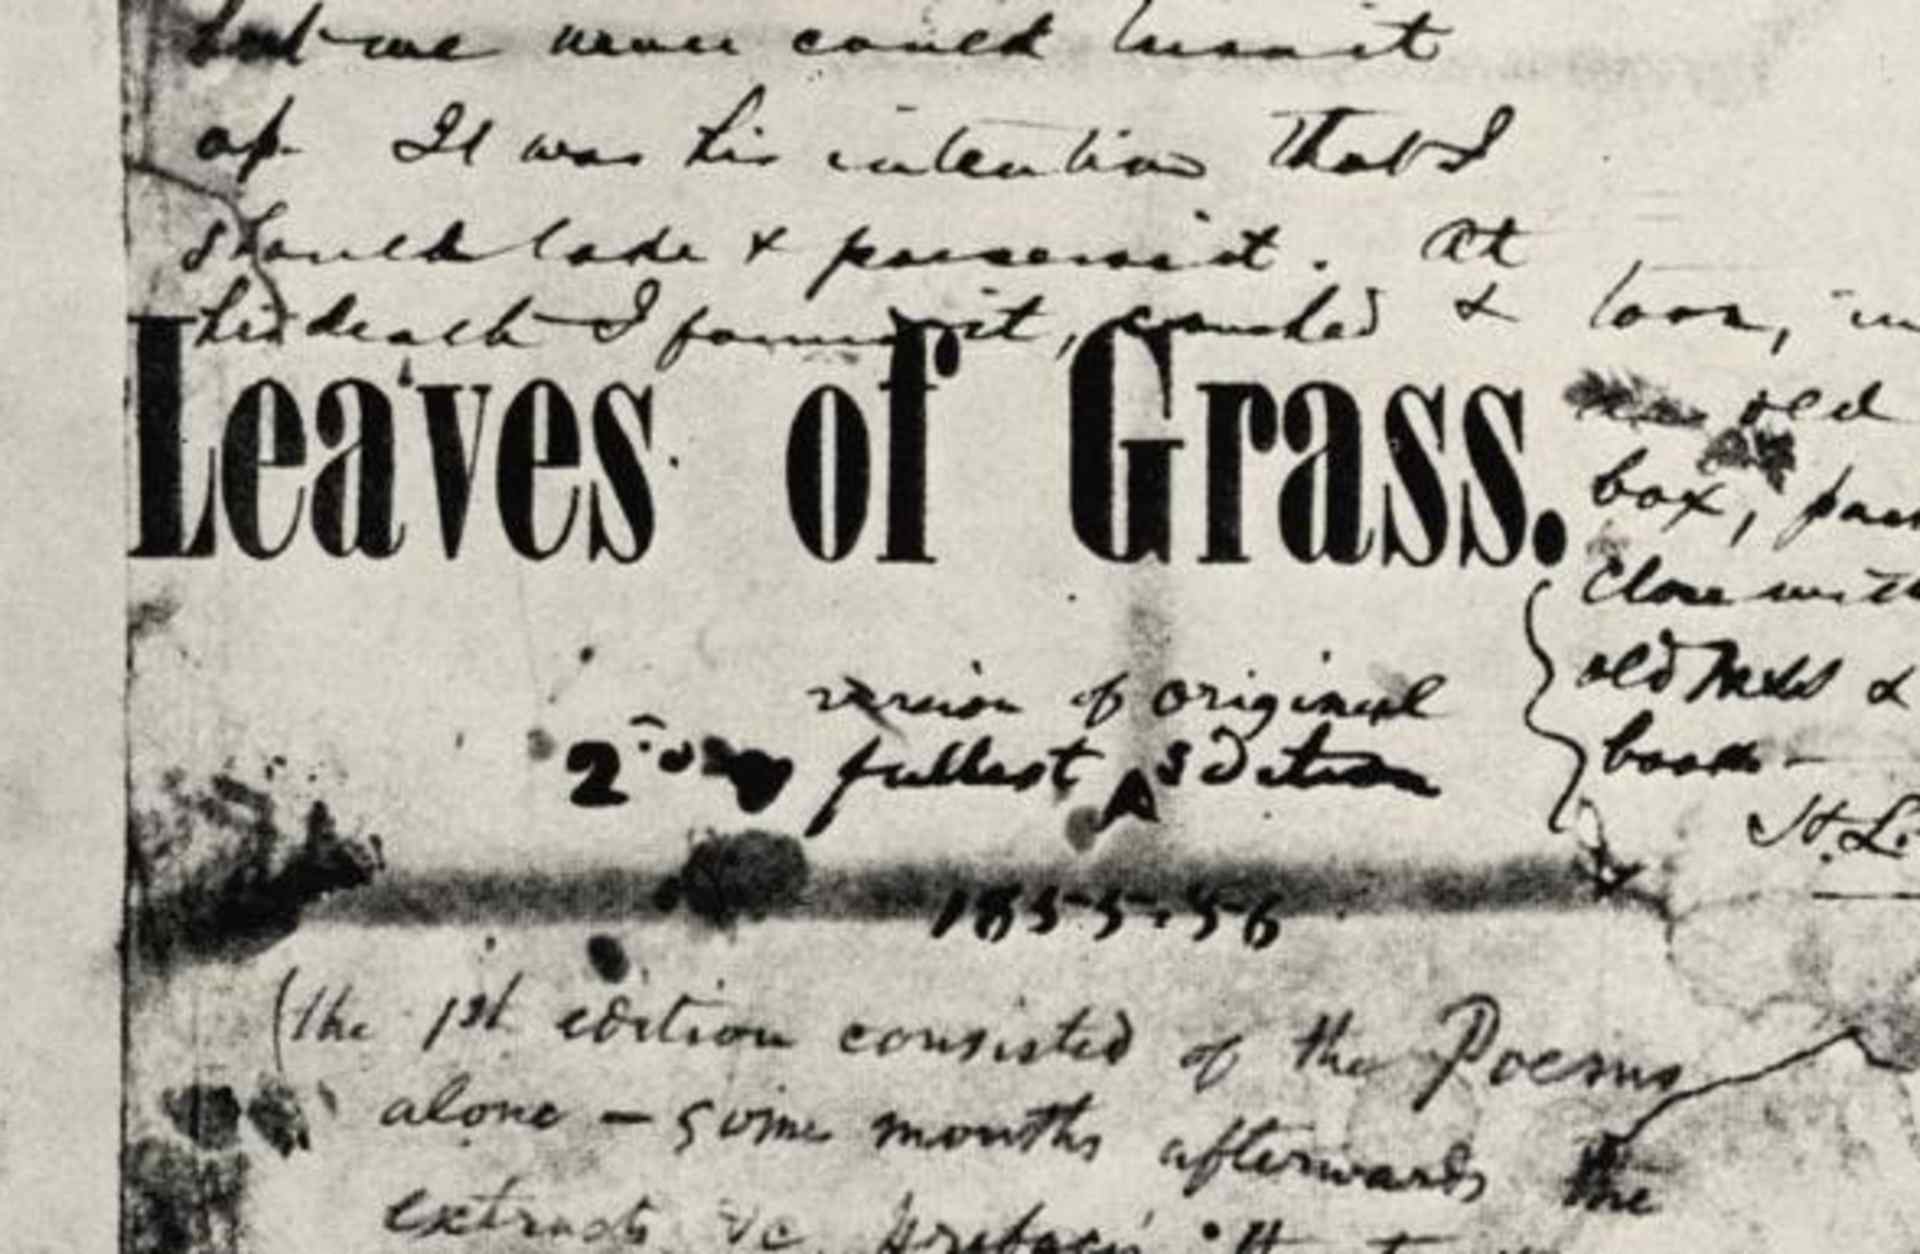 but we never could hunt it
up It was his intention that I
should take & preserve it. At
his death I found it, crushed & torn, in
an old
box,
close with
old Mss &
books —
H. L.
Leaves of Grass.
version of original
2nd & fullest ^ Edition
1855-56
(the 1st edition consisted of the Poems
alone — some months afterwards the
extracts &c prefac'